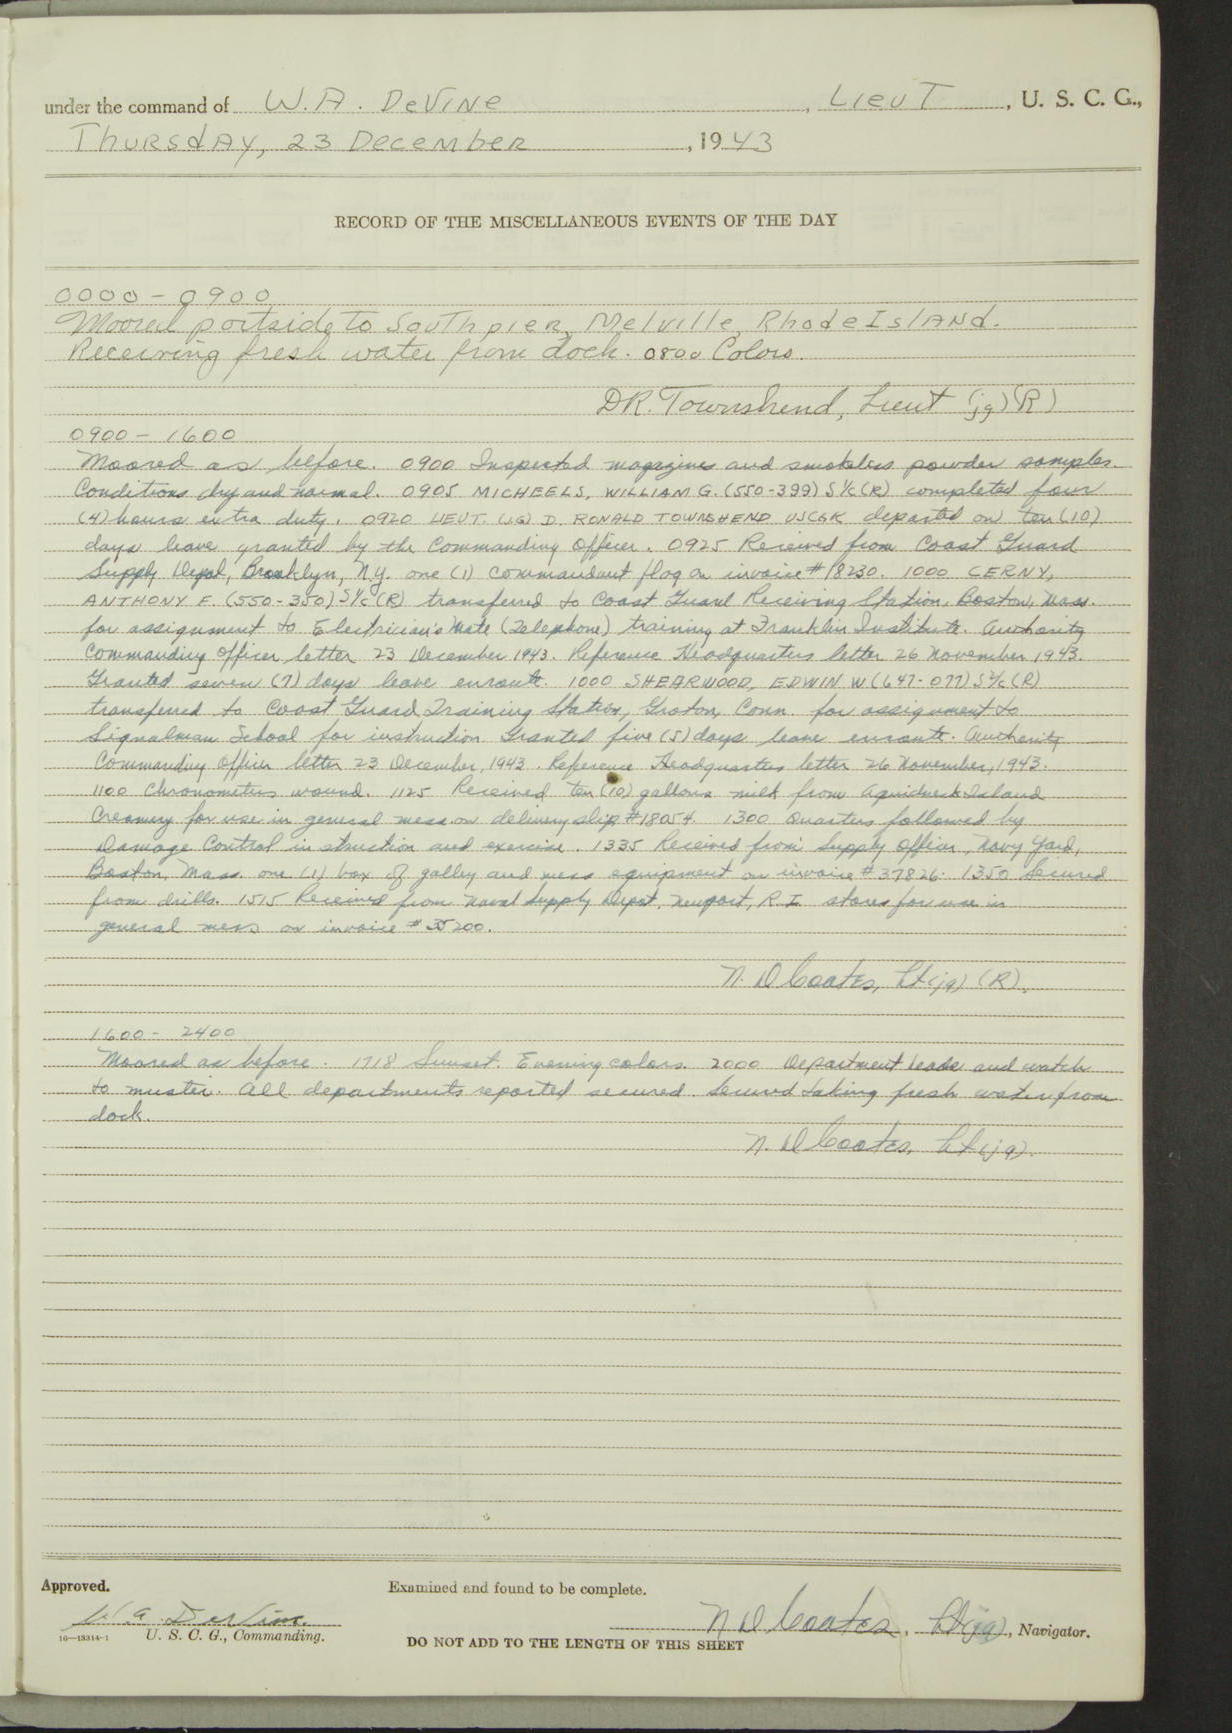 under the command of W.A. DeVine, Lieut, U. S. C. G.,
Thursday, 23 December, 1943
RECORD OF THE MISCELLANEOUS EVENTS OF THE DAY
0000 - 0900
Moored portside to South pier, Melville, Rhode Island.
Receiving fresh water from dock. 0800 Colors.
D.R. Townshend, Lieut (jg) (R)
0900 - 1600
Moored as before. 0900 Inspected magazines and smokeless powder samples.
Conditions dry and normal. 0905 MICHEELS, WILLIAM G. (550-399) S1/c (R) completed four
(4) hours extra duty. 0920 LIEUT. (JG) D. RONALD TOWNSHEND USCGR departed on ten (10)
days leave granted by the Commanding Officer. 0925 Received from Coast Guard
Supply Depot, Brooklyn, N.Y. one (1) commandant flag on invoice # 18230. 1000 CERNY,
ANTHONY F. (550-350) S1/c (R) transferred to Coast Guard Receiving Station, Boston, Mass.
for assignment to Electrician's Mate (Telephone) training at Franklin Institute. Authority
Commanding Officer letter 23 December 1943. Reference Headquarters letter 26 November 1943.
Granted seven (7) days leave enroute. 1000 SHEARWOOD, EDWIN W (647-077) S2/c (R)
transferred to Coast Guard Training Station, Groton, Conn. for assignment to
Signalman School for instruction Granted five (5) days leave enroute. Authority
Commanding Officer letter 23 December, 1943. Reference Headquarters letter 26 November, 1943.
1100 Chronometers wound. 1125 Received ten (10) gallons milk from Aquidneck Island
Creamery for use in general mess on delivery slip #18054 1300 Quarters followed by
Damage Control instruction and exercise. 1335 Received from Supply Officer, Navy Yard,
Boston, Mass. one (1) box of galley and mess equipment on invoice # 37826. 1350 Secured
from drills. 1515 Received from Naval Supply Depot, Newport, R.I. stores for use in
general mess on invoice # 35200.
N. D Coates, Lt (jg) (R).
1600 - 2400
Moored as before. 1718 Sunset. Evening colors. 2000 Department heads and watch
to muster. All departments reported secured. Secured taking fresh water from
dock.
N. D Coates, Lt (jg).
Approved.
Examined and found to be complete.
W.A. DeVine
N D Coates, Lt(jg), Navigator.
16—13314-1 U. S. C. G., Commanding.
DO NOT ADD TO THE LENGTH OF THIS SHEET